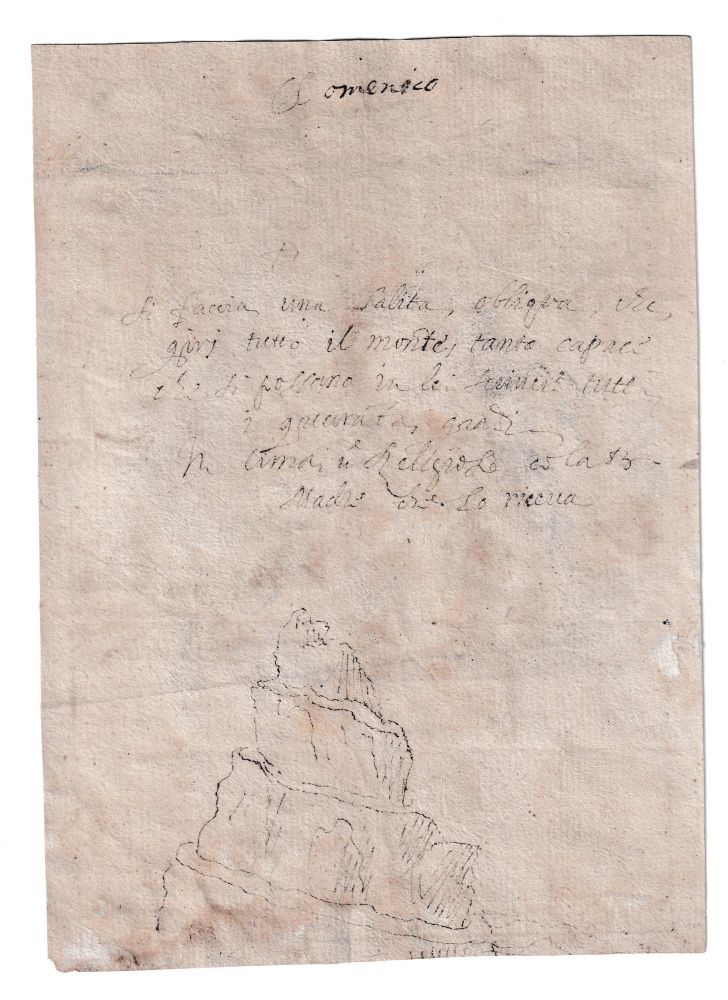 Domenico
Si faccia una salita, obliqua, che,
giri tutto il monte, tanto capace
che si possano in lei scriuere tutti
i gradi
In Cima, u Religioso co la B
Madre che lo riceua